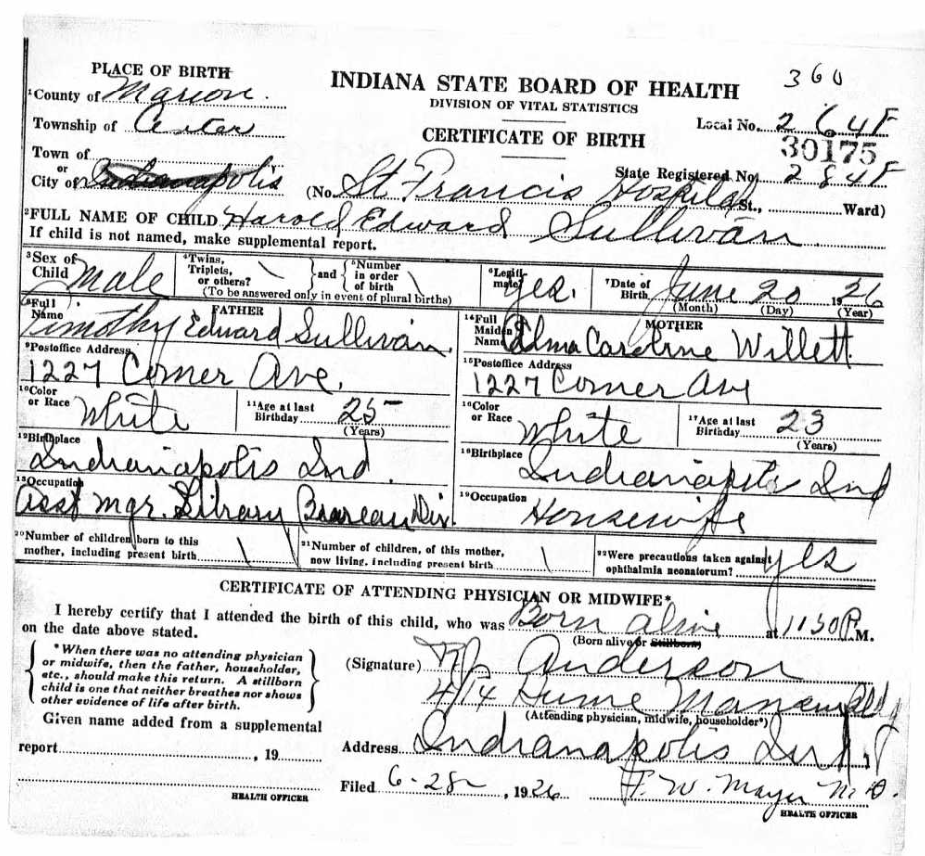 PLACE OF BIRTH
INDIANA STATE BOARD OF HEALTH
360
¹County of Marion.
DIVISION OF VITAL STATISTICS
Township of Center
Local No. 264F
CERTIFICATE OF BIRTH
30175
Town of
or
City of Indianapolis
State Registered No. 284F
(No. St. Francis Hospital St., Ward)
²FULL NAME OF CHILD Harold Edward Sullivan
If child is not named, make supplemental report.
³Sex of Child Male
⁴Twins, Triplets, or others? \ } and { ⁵Number in order of birth \
(To be answered only in event of plural births)
⁶Legitimate? Yes.
⁷Date of Birth June 20 1926
(Month) (Day) (Year)
FATHER
Full Name Timothy Edward Sullivan
⁹Postoffice Address
1227 Comer Ave.
¹⁰Color or Race White
¹¹Age at last Birthday 25
(Years)
¹²Birthplace
Indianapolis Ind.
¹³Occupation
Asst mgr. Library Bureau Div.
MOTHER
¹⁴Full Maiden Name Alma Caroline Willett.
¹⁵Postoffice Address
1227 Comer Ave
¹⁶Color or Race White
¹⁷Age at last Birthday 23
(Years)
¹⁸Birthplace
Indianapolis Ind
¹⁹Occupation
Housewife
²⁰Number of children born to this mother, including present birth 1
²¹Number of children, of this mother, now living, including present birth 1
²²Were precautions taken against ophthalmia neonatorum? Yes
CERTIFICATE OF ATTENDING PHYSICIAN OR MIDWIFE*
I hereby certify that I attended the birth of this child, who was Born alive at 1130 P.M.
(Born alive or Stillborn)
on the date above stated.
*When there was no attending physician
or midwife, then the father, householder,
etc., should make this return. A stillborn
child is one that neither breathes nor shows
other evidence of life after birth.
(Signature) Anderson
414 Hume Mansur Bldg
(Attending physician, midwife, householder*)
Given name added from a supplemental
report , 19
Address Indianapolis Ind
HEALTH OFFICER
Filed 6-28- , 1926 F. W. Mayer M.D.
HEALTH OFFICER